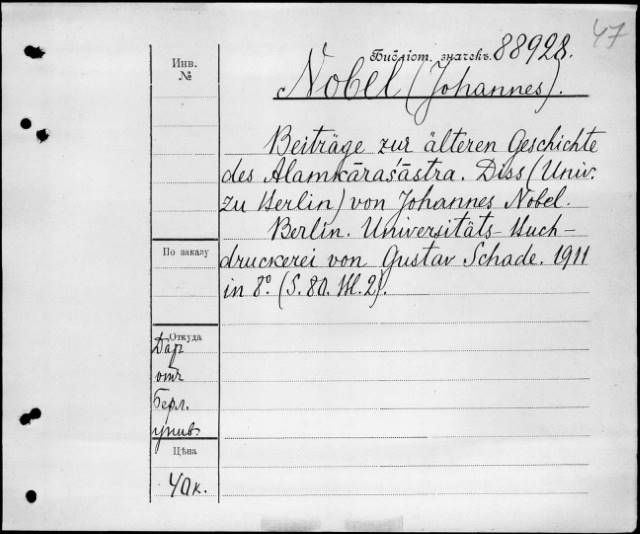 47
Библіот. значекъ 88928.
Инв.
№
Nobel (Johannes).
Beiträge zur älteren Geschichte
des Alamkāraśāstra. Diss (Univ.
zu Berlin) von Johannes Nobel.
Berlin. Universitäts-Buch-
druckerei von Gustav Schade. 1911
in 8°. (S.
По заказу
Откуда
Дар
отъ
Берл.
унив
Цѣна
40к.